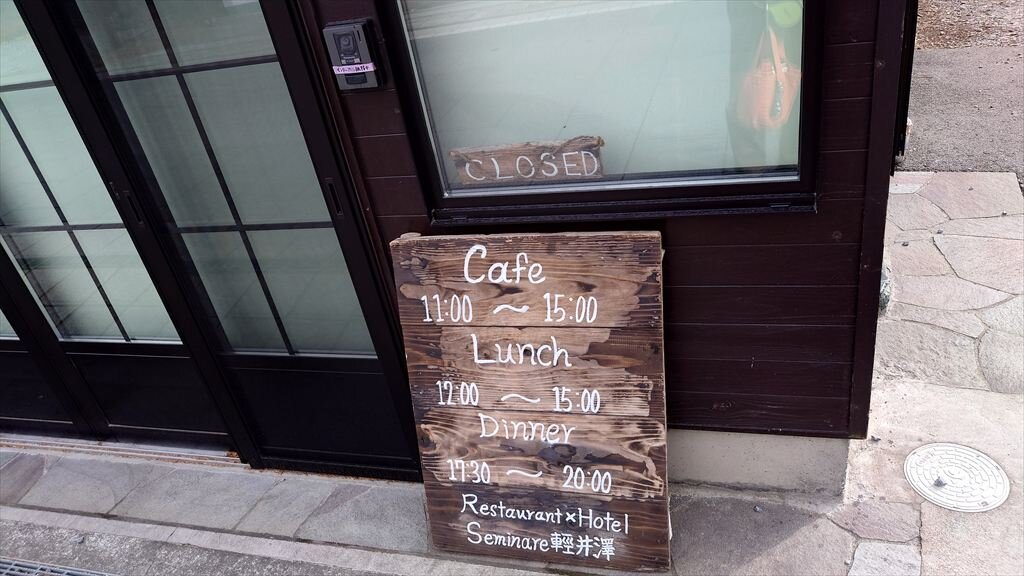 CLOSED
Cafe
11:00 〜 15:00
Lunch
12:00 〜 15:00
Dinner
17:30 〜 20:00
Restaurant×Hotel
Seminare軽井澤